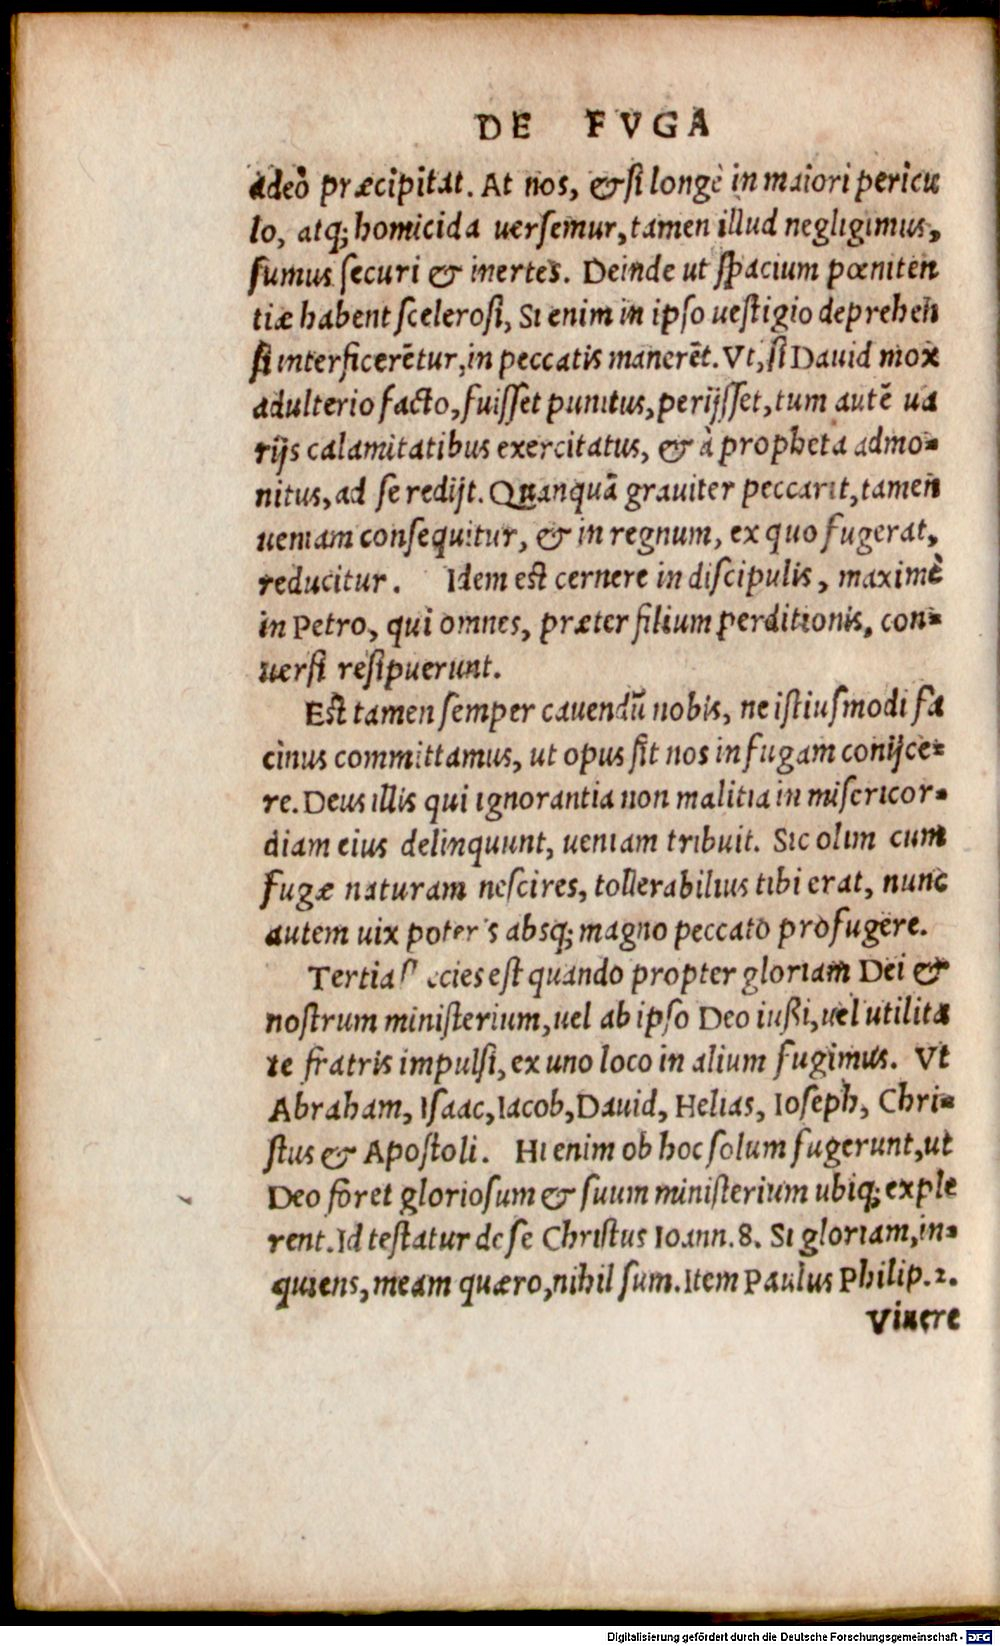 DE FVGA
adeò præcipitat. At nos, & si longè in maiori pericu
lo, atq; homicida uersemur, tamen illud negligimus,
sumus securi & inertes. Deinde ut spacium pœniten
tiæ habent scelerosi, Si enim in ipso uestigio deprehen
si interficerētur, in peccatis manerēt. Vt, si Dauid mox
adulterio facto, fuisset punitus, perijsset, tum autē ua
rijs calamitatibus exercitatus, & à propheta admo-
nitus, ad se redijt. Quanquā grauiter peccarit, tamen
ueniam consequitur, & in regnum, ex quo fugerat,
reducitur. Idem est cernere in discipulis, maximè
in Petro, qui omnes, præter filium perditionis, con-
uersi resipuerunt.
Est tamen semper cauendū nobis, ne istiusmodi fa
cinus committamus, ut opus sit nos in fugam conijce-
re. Deus illis qui ignorantia non malitia in misericor-
diam eius delinquunt, ueniam tribuit. Sic olim cum
fugæ naturam nescires, tollerabilius tibi erat, nunc
autem uix poteris absq; magno peccato profugere.
Tertia species est quando propter gloriam Dei &
nostrum ministerium, uel ab ipso Deo iussi, uel utilita
te fratris impulsi, ex uno loco in alium fugimus. Vt
Abraham, Isaac, Iacob, Dauid, Helias, Ioseph, Chri-
stus & Apostoli. Hi enim ob hoc solum fugerunt, ut
Deo foret gloriosum & suum ministerium ubiq; exple
rent. Id testatur de se Christus Ioann. 8. Si gloriam, in-
quiens, meam quæro, nihil sum. Item Paulus Philip. 2.
Viuere
Digitalisierung gefördert durch die Deutsche Forschungsgemeinschaft - DFG